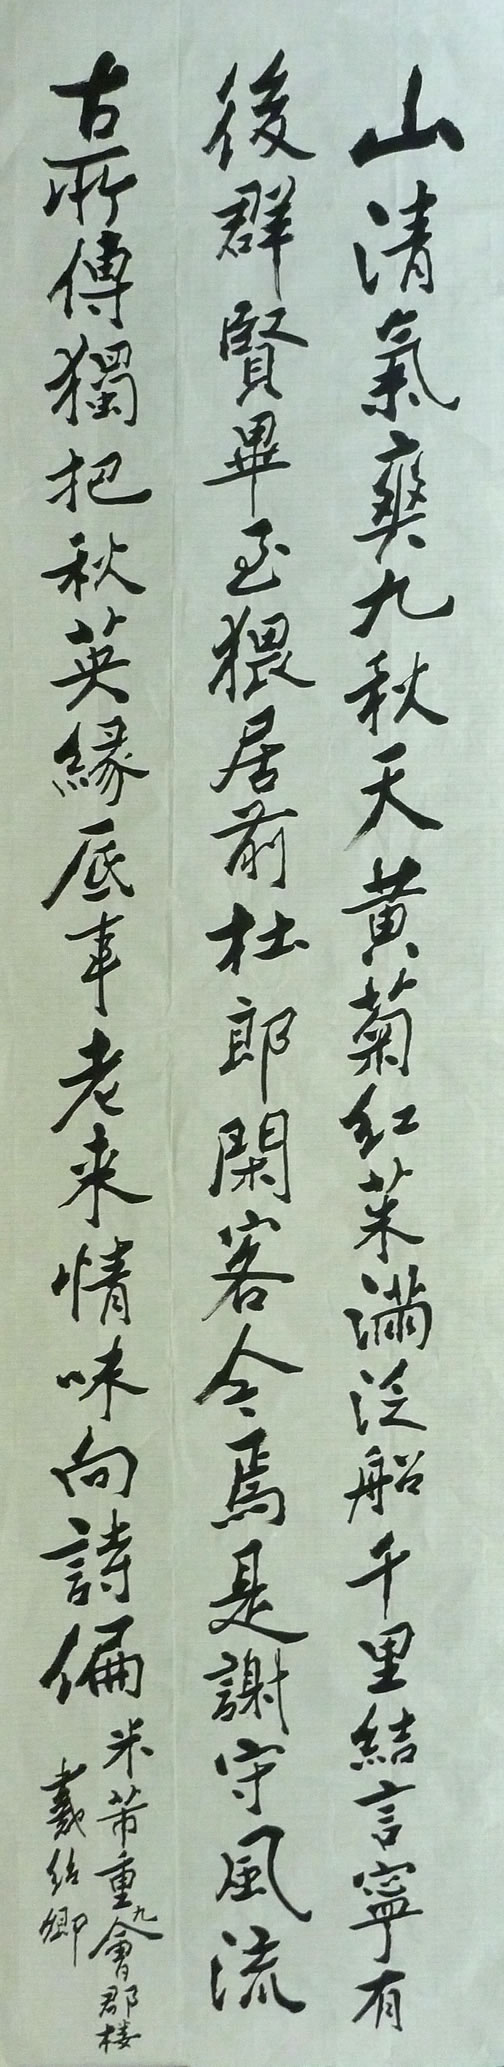 山清氣爽九秋天黄菊紅茱滿泛船千里結言寧有
後群賢畢至猥居前杜郎閑客今焉是謝守風流
古所傳獨把秋英緣底事老来情味向詩偏
米芾重九會郡楼
戴绍卿